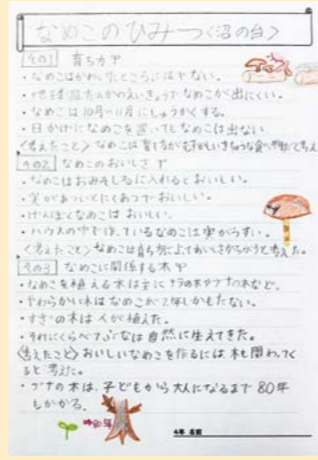 なめこのひみつ〈沼の台〉
その1 育ち方
・なめこはかわいたところにはでない。
・地球温だんかのえいきょうでなめこが出にくい。
・なめこは10月〜11月にしゅうかくする。
・日かげになめこを置いてもなめこは出ない
〈考えたこと〉なめこは育て方がむずかしい
その2 なめこのおいしさ
・なめこはおみそしるに入れるとおいしい。
・実があついとにくあつでおいしい。
・げんぼくなめこはおいしい。
・ハウスの中で
ているなめこは実がうすい。
〈考えたこと〉なめこは育ち方によっておいしさがちがうと考えた。
その3 なめこに関係する木
・なめこを植える木は主にナラの木やブナの木など。
・やわらかい木はなめこが2年しかもたない。
・すぎの木は人が植えた。
・それにくらべてぶなは自然に生えてきた。
〈考えたこと〉おいしいなめこを作るには木も関わってく
ると考えた。
・ブナの木は、子どもから大人になるまで80年
もかかる。
80年
4年 名前